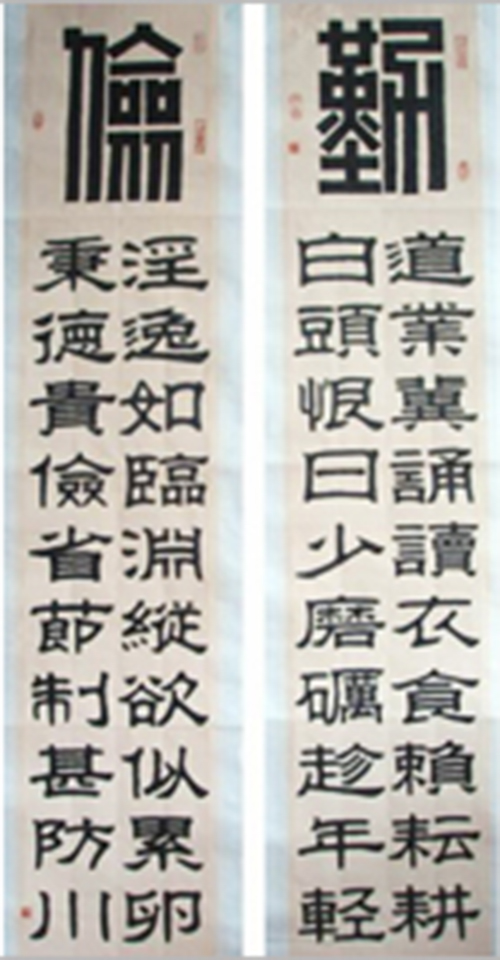 勤
道業冀誦讀衣食賴耘耕
白頭恨日少磨礪趁年輕
儉
淫逸如臨淵縱欲似累卵
秉德貴儉省節制甚防川